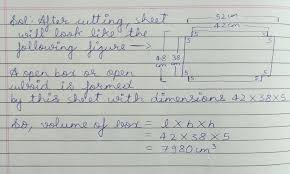 Sol: After cutting, sheet
will look like the
following figure →
52 cm
42 cm
5 5
48 cm 38 cm
5 5
A open box or open
cuboid is formed
by this sheet with dimensions 42×38×5
So, volume of box = l×b×h
= 42×38×5
= 7980 cm³